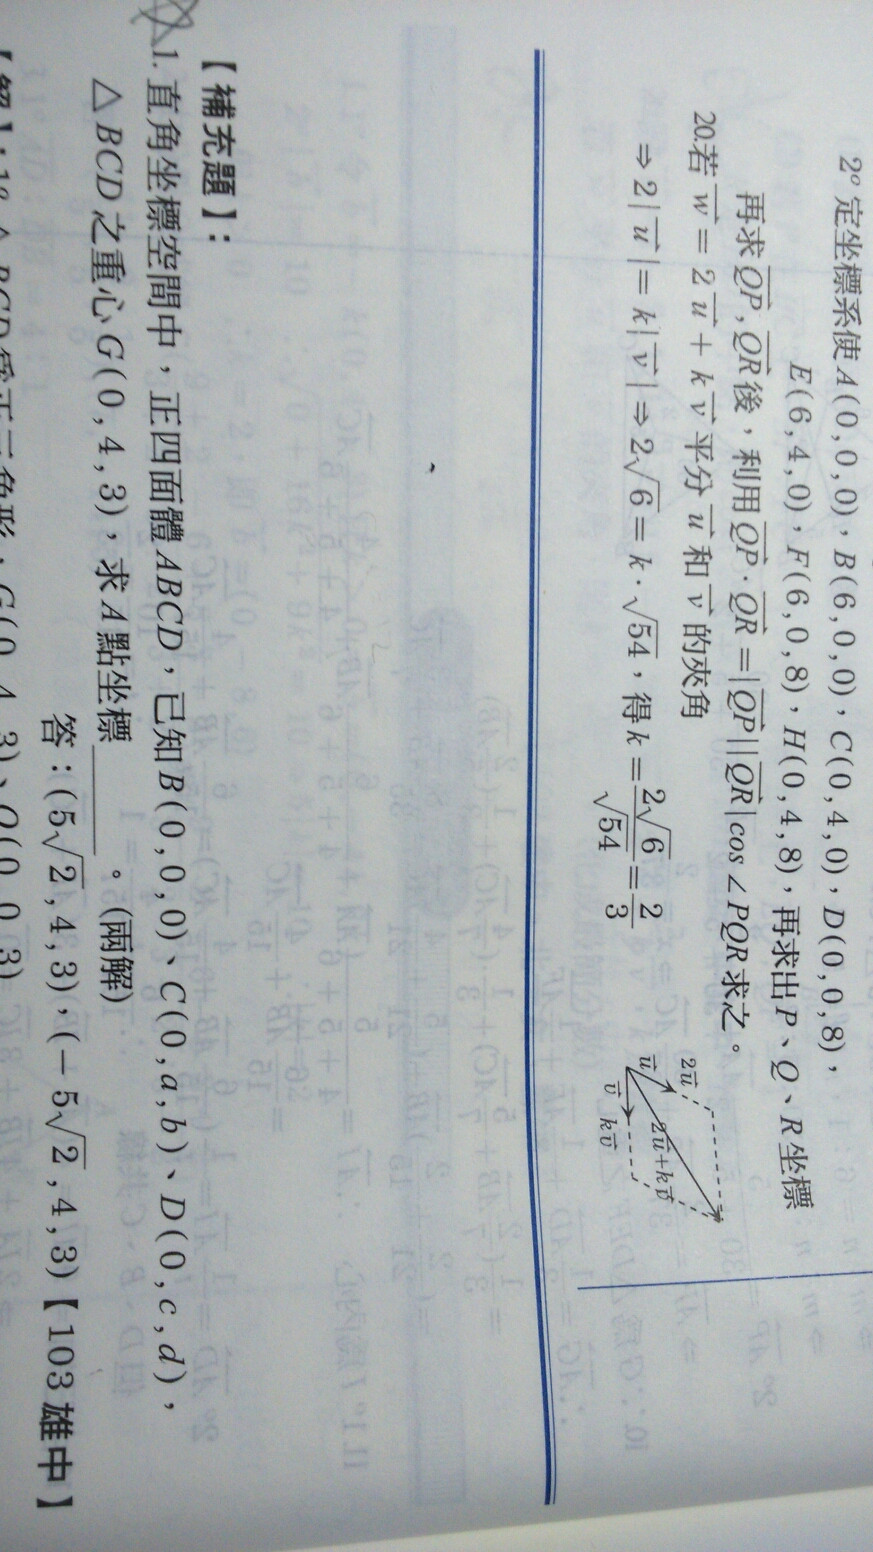 2° 定坐標系使 A(0,0,0), B(6,0,0), C(0,4,0), D(0,0,8),
E(6,4,0), F(6,0,8), H(0,4,8), 再求出 P、Q、R 坐標
再求 \overrightarrow{QP}, \overrightarrow{QR} 後, 利用 \overrightarrow{QP}·\overrightarrow{QR}=|\overrightarrow{QP}||\overrightarrow{QR}|cos∠PQR 求之。
20.若 \overrightarrow{w}=2\overrightarrow{u}+k\overrightarrow{v} 平分 \overrightarrow{u} 和 \overrightarrow{v} 的夾角
⇒2|\overrightarrow{u}|=k|\overrightarrow{v}|⇒2√6=k·√54, 得 k=\frac{2√6}{√54}=\frac{2}{3}
2\overrightarrow{u}
\overrightarrow{u}
2\overrightarrow{u}+k\overrightarrow{v}
\overrightarrow{v} k\overrightarrow{v}
【補充題】:
1. 直角坐標空間中, 正四面體 ABCD, 已知 B(0,0,0)、C(0,a,b)、D(0,c,d),
△BCD 之重心 G(0,4,3), 求 A 點坐標______。(兩解)
答:(5√2,4,3), (-5√2,4,3)【103雄中】
【解】:1° △BCD 為正三角形, G(0,4,3)、O(0,0,3)